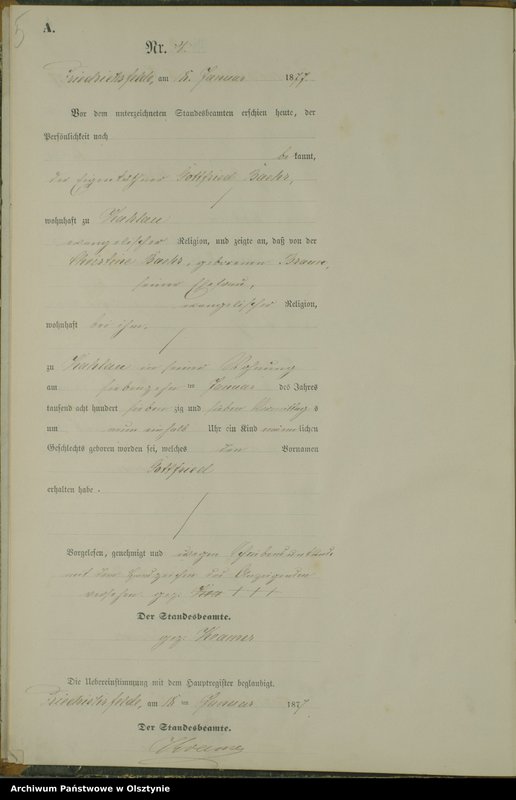 5
A.
Nr. 4.
Friedrichsfelde, am 18. Januar 1877
Vor dem unterzeichneten Standesbeamten erschien heute, der
Persönlichkeit nach
be kannt,
der Eigenkäthner Gottfried Baehr,
wohnhaft zu Kahlau
evangelischer Religion, und zeigte an, daß von der
Christine Baehr, geborenen Braun,
seiner Ehefrau,
evangelischer Religion,
wohnhaft bei ihm,
zu Kahlau in seiner Wohnung
am siebenzehn ten Januar des Jahres
tausend acht hundert sieben zig und sieben Vormittag s
um neun einhalb Uhr ein Kind männlichen
Geschlechts geboren worden sei, welches den Vornamen
Gottfried
erhalten habe.
Vorgelesen, genehmigt und wegen
mit dem Handzeichen des Anzeigenden
versehen gez. +++
Der Standesbeamte.
gez. Kramer
Die Uebereinstimmung mit dem Hauptregister beglaubigt.
Friedrichsfelde, am 18 ten Januar 1877
Der Standesbeamte.
Kramer
Archiwum Państwowe w Olsztynie